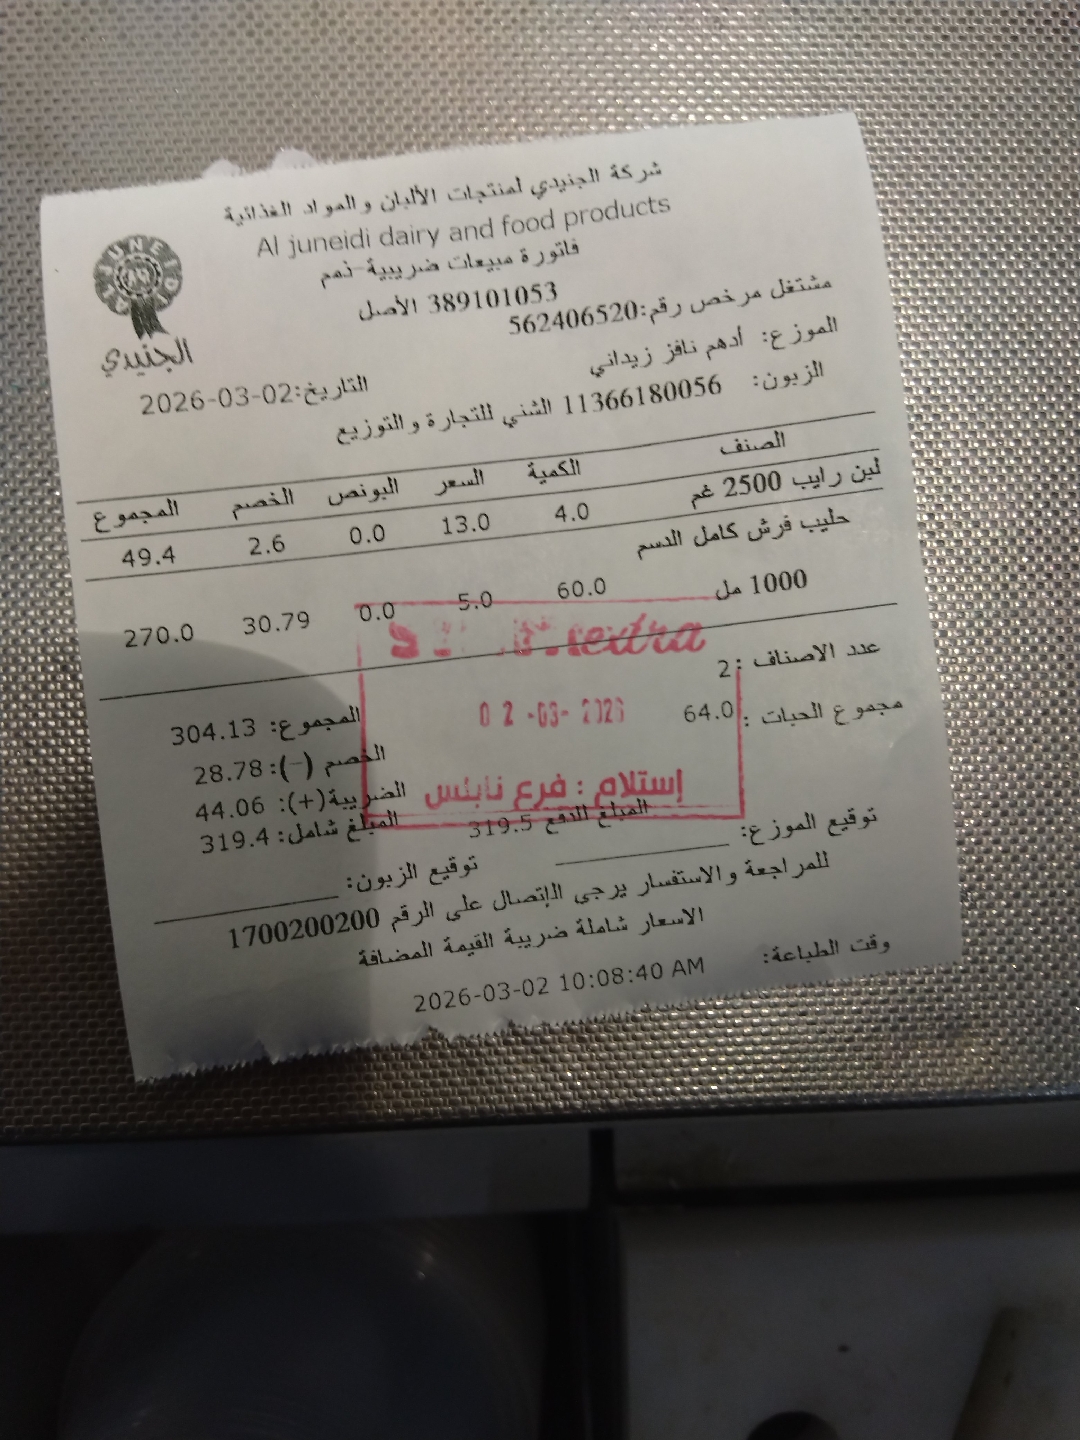 شركة الجنيدي لمنتجات الألبان والمواد الغذائية
Al juneidi dairy and food products
فاتورة مبيعات ضريبية-ذمم
389101053 الأصل
JUNEIDI
الجنيدي
مشتغل مرخص رقم:562406520
الموزع: أدهم نافز زيداني
التاريخ:2026-03-02
الزبون: 11366180056 الشني للتجارة والتوزيع
الصنف الكمية السعر البونص الخصم المجموع
لبن رايب 2500 غم 4.0 13.0 0.0 2.6 49.4
حليب فرش كامل الدسم
1000 مل 60.0 5.0 0.0 30.79 270.0
extra
عدد الاصناف :2
02-03-2026
مجموع الحبات :64.0
المجموع: 304.13
الخصم (-):28.78
الضريبة(+): 44.06
إستلام : فرع نابلس
المبلغ شامل: 319.4
المبلغ للدفع 319.5
توقيع الموزع:
توقيع الزبون:
للمراجعة والاستفسار يرجى الإتصال على الرقم 1700200200
الاسعار شاملة ضريبة القيمة المضافة
وقت الطباعة: 2026-03-02 10:08:40 AM